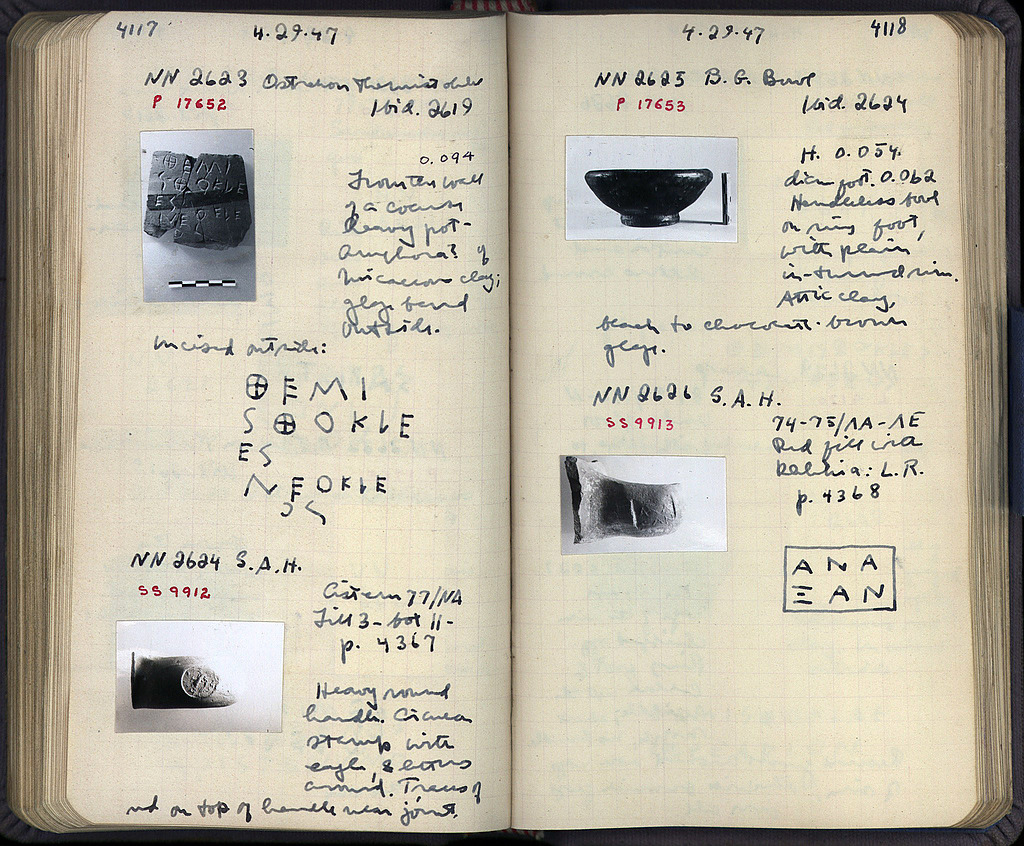 4117
4.29.47
NN 2623 Ostrakon Themistokles
P 17652
Ibid. 2619
0.094
From the wall
of a coarse
heavy pot -
amphora? of
micaceous clay;
glaze band
outside.
Incised outside:
ⴲEMI
Sⴲ O K L E
E S
N E O K L E
O S
NN 2624 S.A.H.
SS 9912
Cistern 77/ΝΑ
Fill 3 - bot 11 -
p. 4367
Heavy round
handle. Circular
stamp with
eagle, & letters
around. Traces of
red on top of handle near joint.
4.29.47
4118
NN 2625 B.G. Bowl
P 17653
Ibid. 2624
H. 0.054.
diam foot. 0.062
Handleless bowl
on ring foot,
with plain,
in-turned rim.
Attic clay,
black to chocolate-brown
glaze.
NN 2626 S.A.H.
SS 9913
74-75/ΛΑ-ΛΕ
Red fill with
L.R.
p. 4368
ΑΝΑ
ΞΑΝ